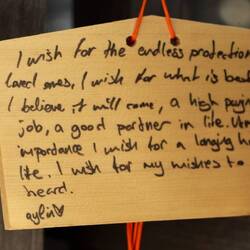 I wish for the endless protection
loved ones, I wish for what is best
I believe it will come, a high paying
job, a good partner in life.
importance I wish for a longing h
life. I wish for my wishes to
heard.
aylin♡